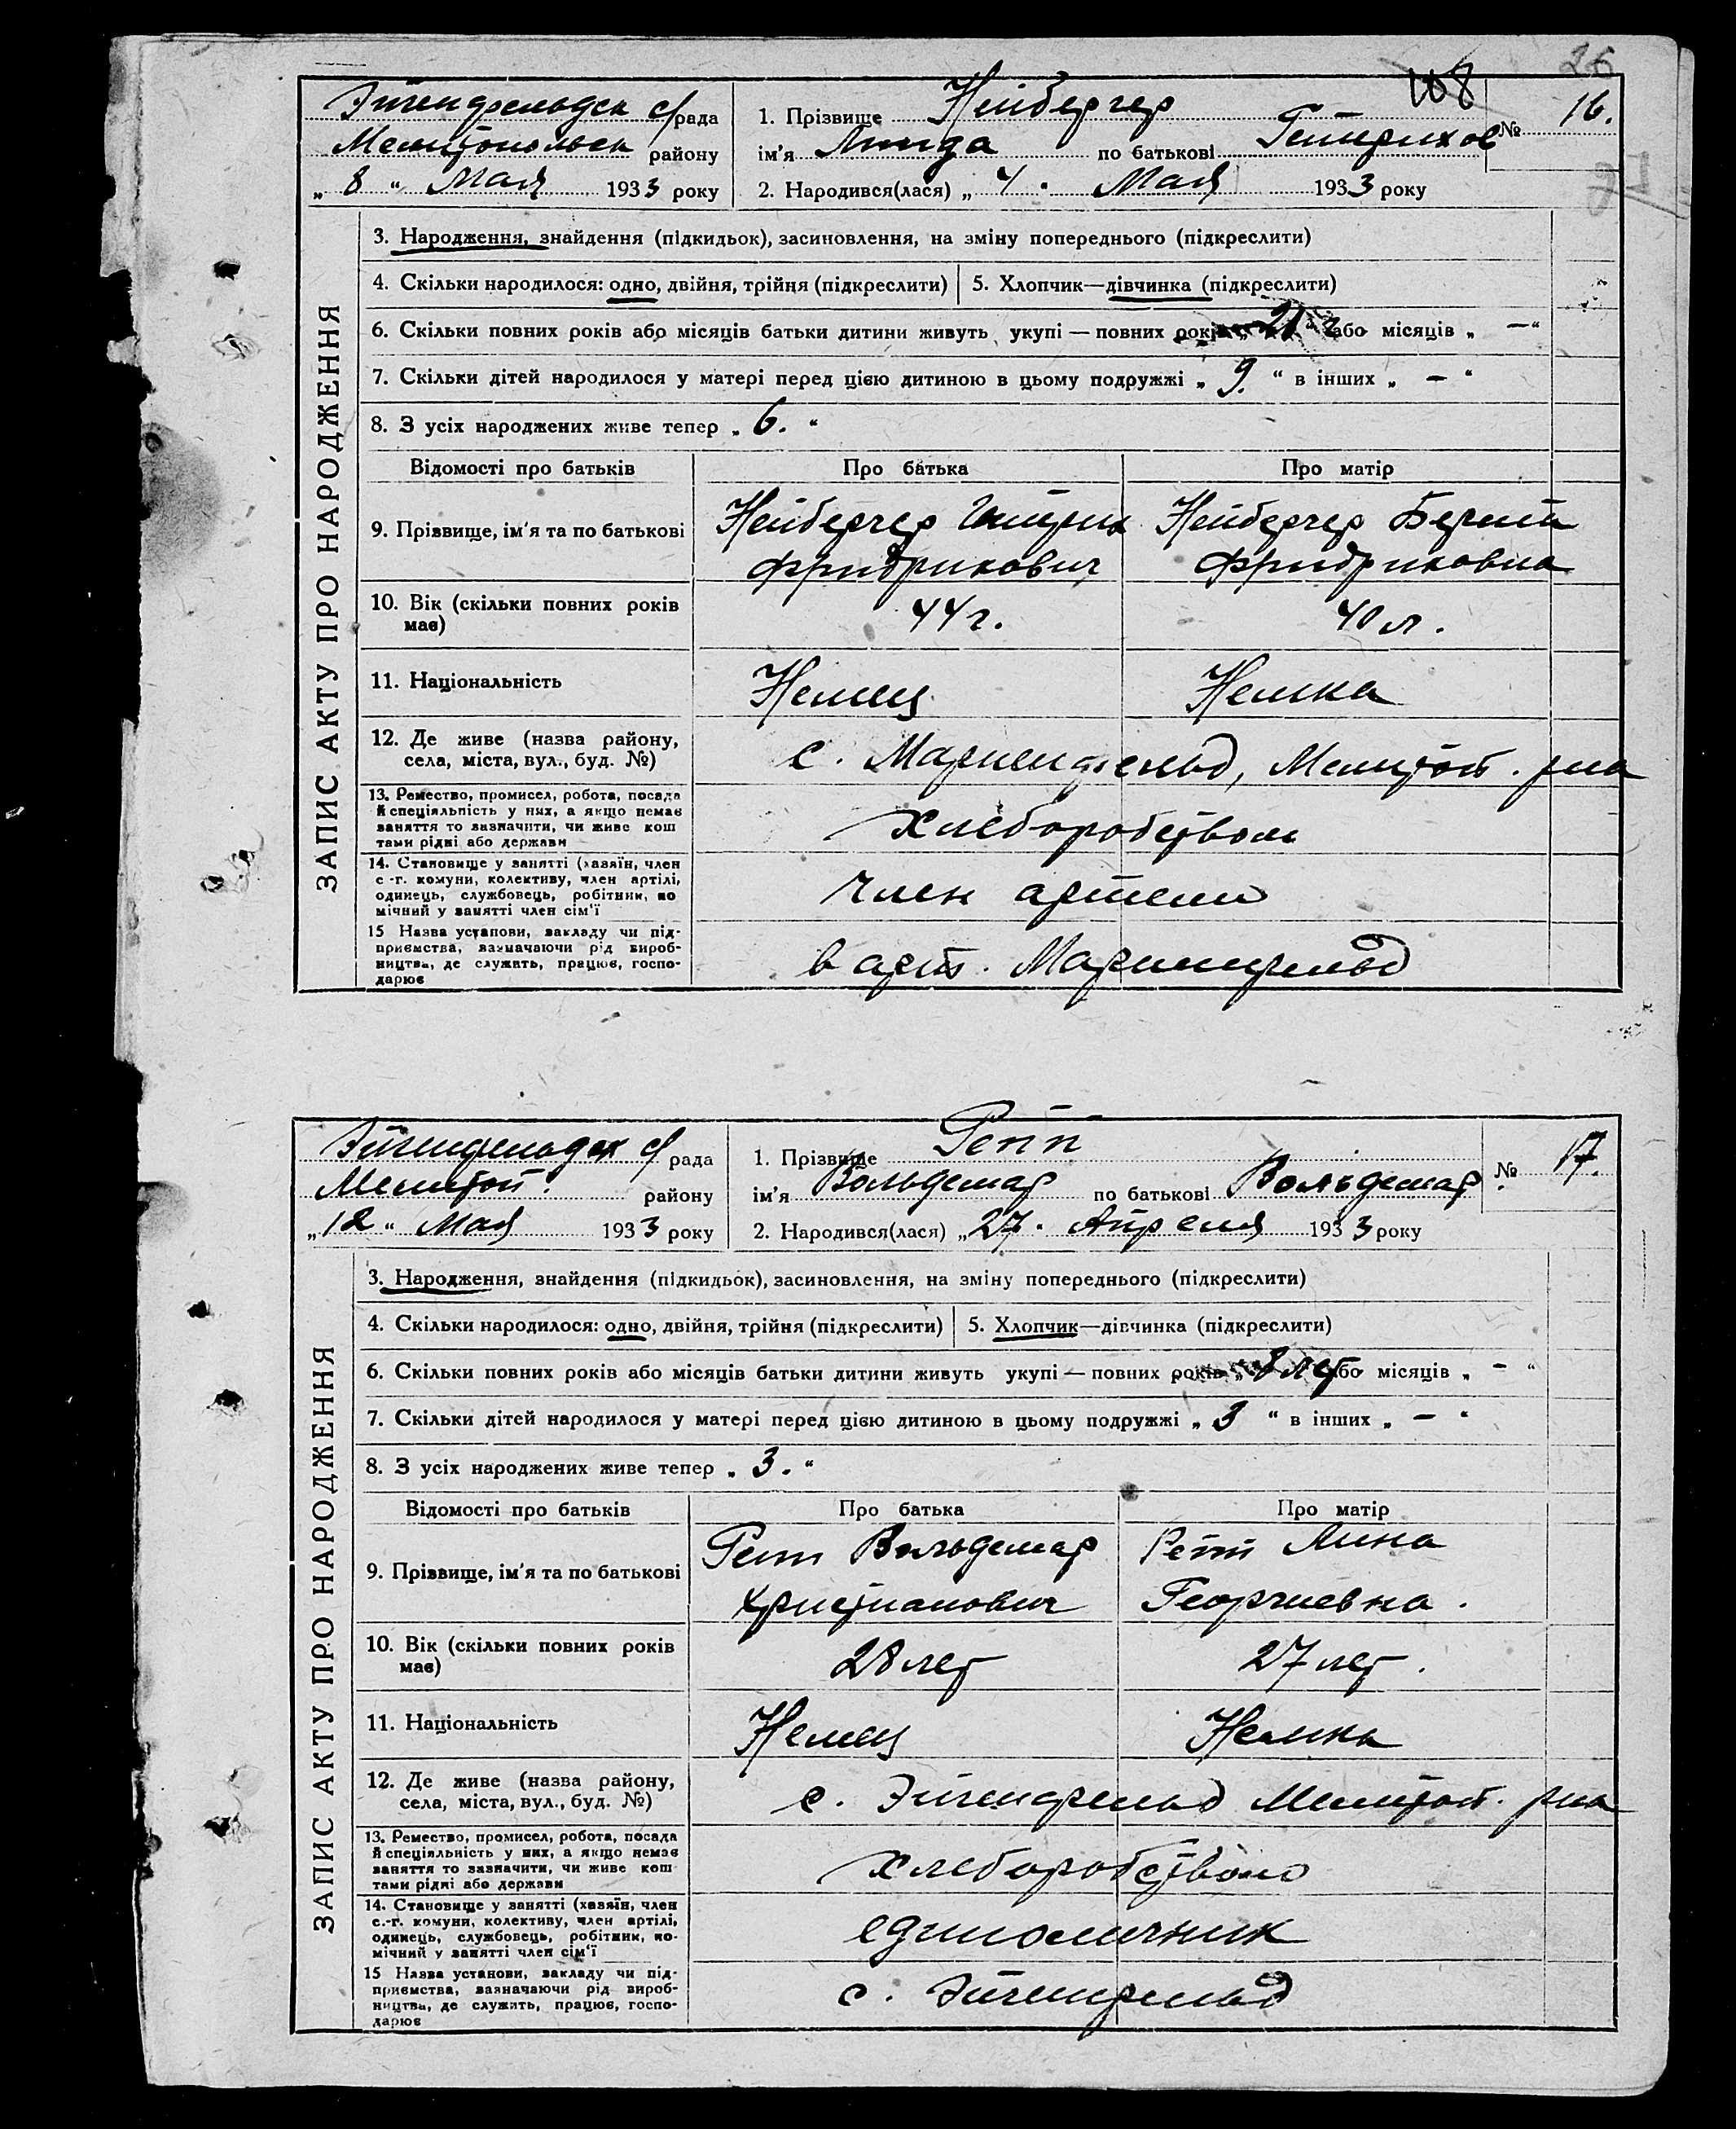 26
108
Эйгенфельдск с/рада
Мелитопольск району
„ 8 “ Мая 1933 року
1. Прізвище Нейбергер
ім'я Линда по батькові Гейнрихов
№ 16.
2. Народився(лася) „ 4 “ Мая 1933 року
ЗАПИС АКТУ ПРО НАРОДЖЕННЯ
3. Народження, знайдення (підкидьок), засиновлення, на зміну попереднього (підкреслити)
4. Скільки народилося: одно, двійня, трійня (підкреслити) 5. Хлопчик—дівчинка (підкреслити)
6. Скільки повних років або місяців батьки дитини живуть укупі — повних років „ 21 г або місяців „ — “
7. Скільки дітей народилося у матері перед цією дитиною в цьому подружжі „ 9. “ в інших „ — “
8. З усіх народжених живе тепер „ 6. “
Відомості про батьків Про батька Про матір
9. Прізвище, ім'я та по батькові
Нейбергер Гейнрих
Фридрихович
Нейбергер Берта
Фридриховна
10. Вік (скільки повних років має)
44 г. 40 л.
11. Національність Немец Немка
12. Де живе (назва району,
села, міста, вул., буд. №)
с. Мариенфельд, Мелитоп. р-на
13. Ремество, промисел, робота, посада
й спеціяльність у них, а якщо немає
заняття то зазначити, чи живе кош
тами рідні або держави
Хлеборобством
14. Становище у занятті (хазяїн, член
с -г. комуни, колективу, член артілі,
одинець, службовець, робітник, по
мічний у занятті член сім'ї
член артели
15 Назва установи, закладу чи під-
приємства, зазначаючи рід вироб-
ництва, де служить, працює, госпо-
дарює
в арт. Мариенфельд
Эйгенфельдск с/рада
Мелитоп. району
„ 12 “ Мая 1933 року
1. Прізвище Репп
ім'я Вольдемар по батькові Вольдемар.
№ 17.
2. Народився(лася) „ 27 “ Апреля 1933 року
ЗАПИС АКТУ ПРО НАРОДЖЕННЯ
3. Народження, знайдення (підкидьок), засиновлення, на зміну попереднього (підкреслити)
4. Скільки народилося: одно, двійня, трійня (підкреслити) 5. Хлопчик—дівчинка (підкреслити)
6. Скільки повних років або місяців батьки дитини живуть укупі — повних років „ 8 лет або місяців „ — “
7. Скільки дітей народилося у матері перед цією дитиною в цьому подружжі „ 3 “ в інших „ — “
8. З усіх народжених живе тепер „ 3. “
Відомості про батьків Про батька Про матір
9. Прізвище, ім'я та по батькові
Репп Вольдемар
Христианович
Репп Анна
Георгиевна.
10. Вік (скільки повних років має)
28 лет 27 лет.
11. Національність Немец Немка
12. Де живе (назва району,
села, міста, вул., буд. №)
с. Эйгенфельд Мелитоп. р-на
13. Ремество, промисел, робота, посада
й спеціяльність у них, а якщо немає
заняття то зазначити, чи живе кош
тами рідні або держави
Хлеборобством
14. Становище у занятті (хазяїн, член
с.-г. комуни, колективу, член артілі,
одинець, службовець, робітник, по-
мічний у занятті член сім'ї
единоличник
15 Назва установи, закладу чи під-
приємства, зазначаючи рід вироб-
ництва, де служить, працює, госпо-
дарює
с. Эйгенфельд